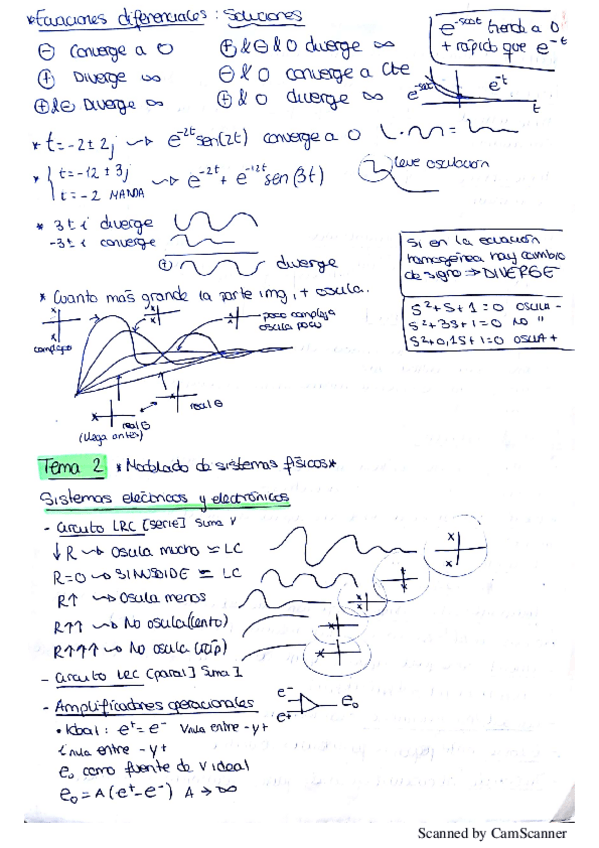 * Ecuaciones diferenciales : Soluciones
⊖ Converge a 0
⊕ Diverge ∞
⊕&⊖ Diverge ∞
⊕ & ⊖ & 0 diverge ∞
⊖ & 0 converge a Cte
⊕ & 0 diverge ∞
tiende a 0
+ rápido que e^-t
e^-t
t
* t = -2 ± 2j → e^-2t sen(2t) converge a 0
* t = -12 ± 3j
t = -2 MANDA
→ e^-2t + e^-12t sen(3t)
leve oscilación
* 3 t i diverge
-3 t i converge
⊕ diverge
Si en la ecuación
homogénea hay cambio
de signo ⇒ DIVERGE
* Cuanto más grande la parte img i, + oscila.
S²+S+1=0 oscila -
S²+3S+1=0 NO "
S²+0,1S+1=0 oscila +
complejo
poco complejo
oscila poco
real ⊖
real ⊖
(llega antes)
Tema 2 * Modelado de sistemas físicos *
Sistemas eléctricos y electrónicos
- Circuito LRC [serie] Suma V
↓ R → Oscila mucho = LC
R=0 → SINUSOIDE = LC
R↑ → Oscila menos
R↑↑ → No oscila (lento)
R↑↑↑ → No oscila (ráp)
- Circuito LRC [paral] Suma I
- Amplificadores operacionales
e-
e+
e₀
• Ideal : e+ = e- V nula entre - y +
i nula entre - y +
e₀ como fuente de V ideal
e₀ = A(e+ - e-) A → ∞
Scanned by CamScanner